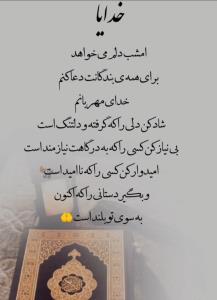 خدایا
امشب دلم می‌خواهد
برای همه‌ی بندگانت دعا کنم
خدای مهربانم
شاد کن دلی را که گرفته و دلتنگ است
بی نیاز کن کسی را که به درگاهت نیازمند است
امیدوار کن کسی را که ناامید است
و بگیر دستانی را که اکنون
به سوی تو بلند است🤲